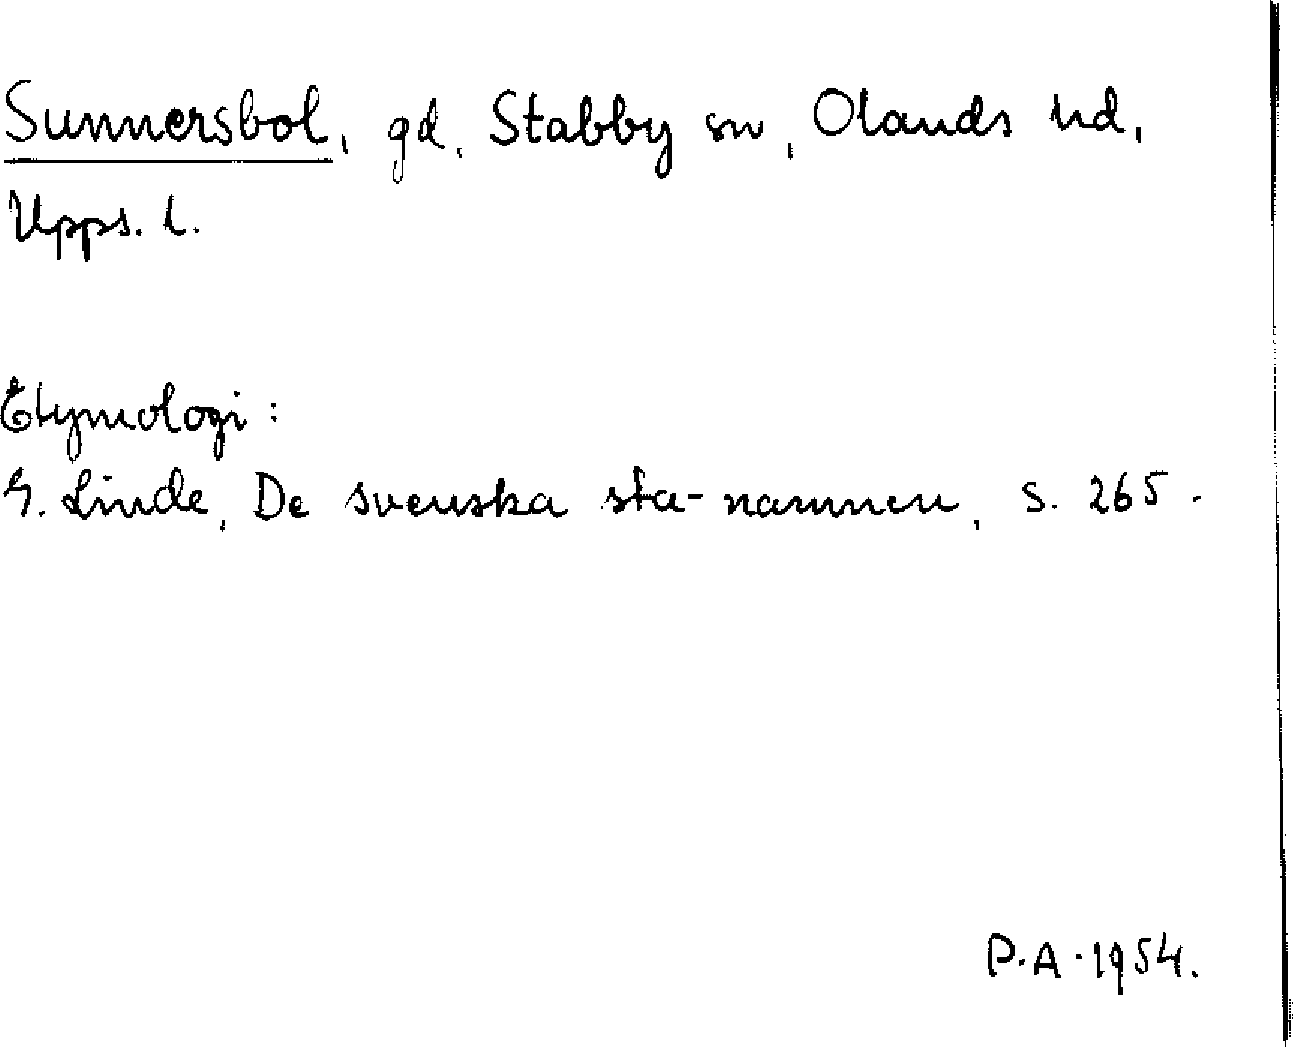 Sunnersbol, gd, Stabby sn, Olands hd,
Upps. l.
Etymologi:
G. Linde, De svenska sta-namnen, s. 265.
P.A. 1954.